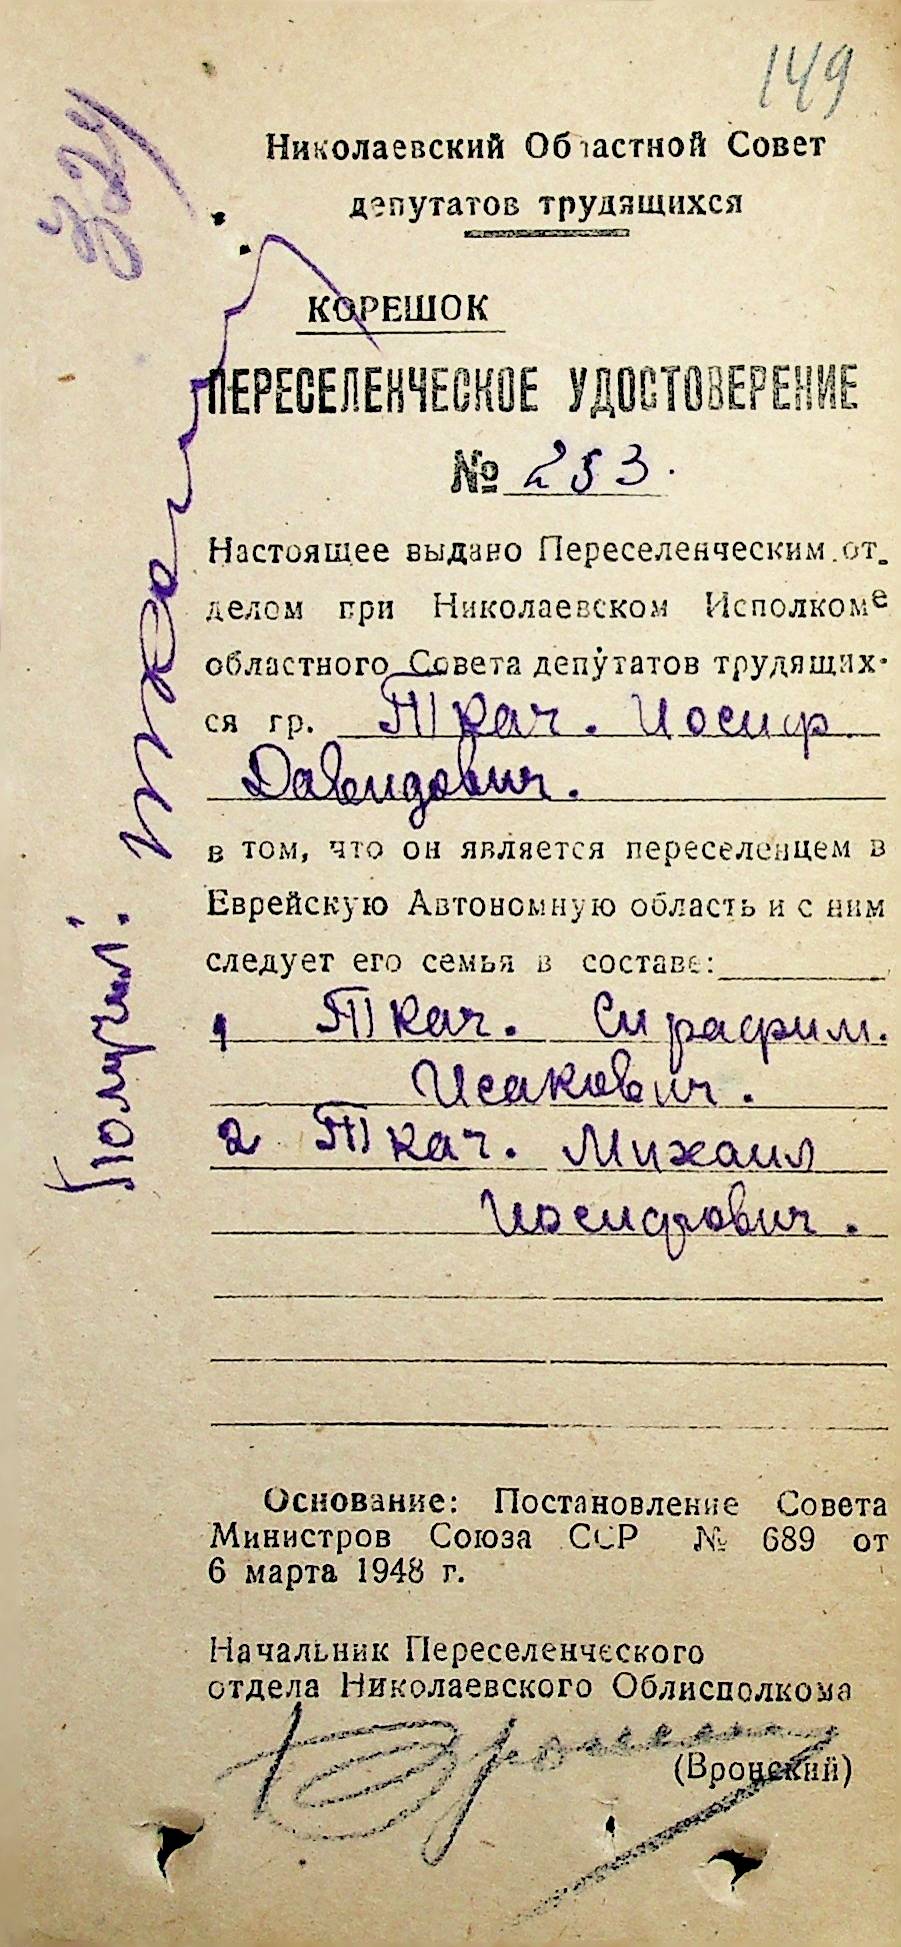 149
324
Николаевский Областной Совет
депутатов трудящихся
КОРЕШОК
ПЕРЕСЕЛЕНЧЕСКОЕ УДОСТОВЕРЕНИЕ
№ 253.
Настоящее выдано Переселенческим от-
делом при Николаевском Исполкоме
областного Совета депутатов трудящих-
ся гр. Ткач. Иосиф
Давидович.
в том, что он является переселенцем в
Еврейскую Автономную область и с ним
следует его семья в составе:
1 Ткач. Сирафим.
Исакович.
2 Ткач. Михаил
Иосифович.
Основание: Постановление Совета
Министров Союза ССР № 689 от
6 марта 1948 г.
Начальник Переселенческого
отдела Николаевского Облисполкома
(Вронский)
Получил: Ткач